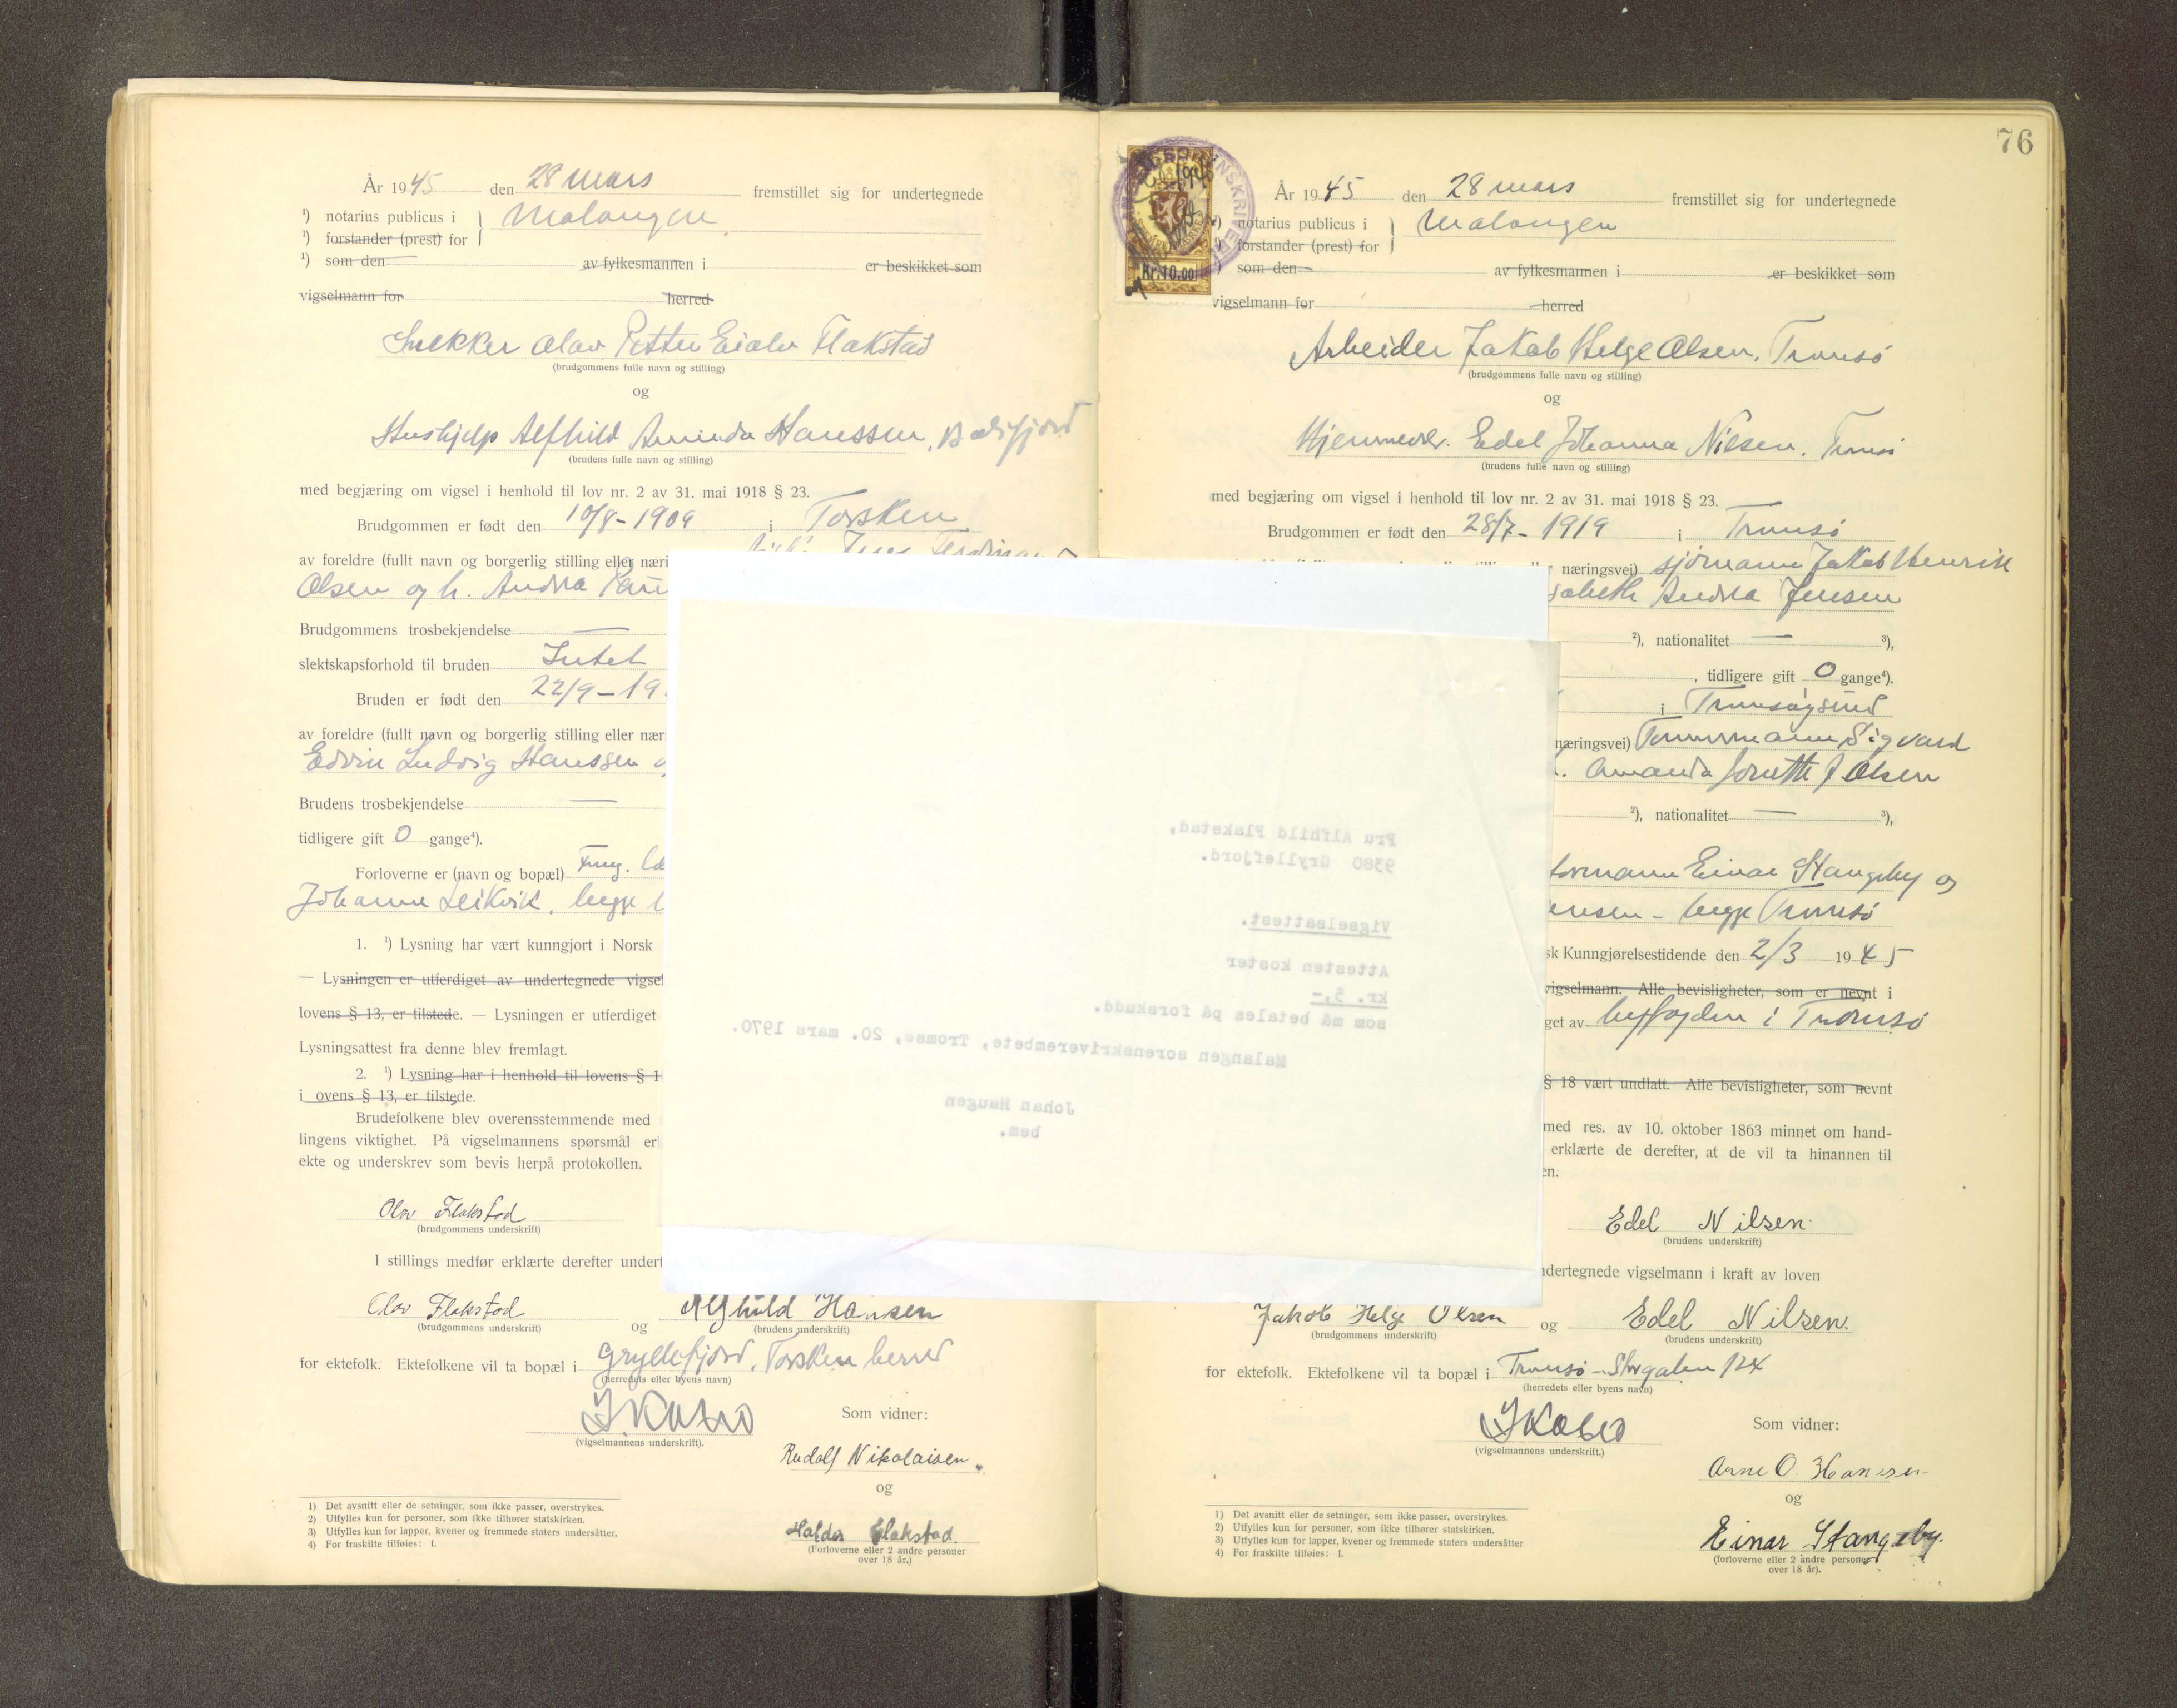 År 1945 den 28 mars fremstillet sig for undertegnede
¹) notarius publicus i } Malangen
¹) forstander (prest) for
¹) som den av fylkesmannen i er beskikket som
vigselmann for herred
Snekker Olav Petter Eialv Flakstad
(brudgommens fulle navn og stilling)
og
Hushjelp Alfhild Hanssen, Balsfjord
(brudens fulle navn og stilling)
med begjæring om vigsel i henhold til lov nr. 2 av 31. mai 1918 § 23.
Brudgommen er født den 10/8-1909 i Torsken
av foreldre (fullt navn og borgerlig stilling eller næri
Olsen og h. Andrea
Brudgommens trosbekjendelse —
slektskapsforhold til bruden Intet
Bruden er født den 22/9-19
av foreldre (fullt navn og borgerlig stilling eller nær
Edvin Ludvig Hanssen
Brudens trosbekjendelse —
tidligere gift 0 gange⁴).
Forloverne er (navn og bopæl)
Johanne Leikvik, begge
1. ¹) Lysning har vært kunngjort i Norsk
— Lysningen er utferdiget av undertegnede vigsel
lovens § 13, er tilstede. — Lysningen er utferdiget
Lysningsattest fra denne blev fremlagt.
2. ¹) Lysning har i henhold til lovens § 1
i ovens § 13, er tilstede.
Brudefolkene blev overensstemmende med
lingens viktighet. På vigselmannens spørsmål er
ekte og underskrev som bevis herpå protokollen.
Olav Flakstad
(brudgommens underskrift)
I stillings medfør erklærte derefter undert
Olav Flakstad og Alfhild Hansen
(brudgommens underskrift) (brudens underskrift)
for ektefolk. Ektefolkene vil ta bopæl i Gryllefjord, Torsken herred
(herredets eller byens navn)
(vigselmannens underskrift).
Som vidner:
Rudolf Nikolaisen.
og
Haldor Flakstad.
(Forloverne eller 2 andre personer
over 18 år.)
1) Det avsnitt eller de setninger, som ikke passer, overstrykes.
2) Utfylles kun for personer, som ikke tilhører statskirken.
3) Utfylles kun for lapper, kvener og fremmede staters undersåtter.
4) For fraskilte tilføies: f.
Fru Alfhild Flakstad,
9380 Gryllefjord.
Vigselsattest.
Attesten koster
kr. 5,-
som må betales på forskudd.
Malangen sorenskriverembete, Tromsø, 20. mars 1970.
Johan Haugen
bem.
76
Kr. 10,00
År 1945 den 28 mars fremstillet sig for undertegnede
notarius publicus i } Malangen
forstander (prest) for
som den av fylkesmannen i er beskikket som
vigselmann for herred
Arbeider Jakob Helge Olsen, Tromsø
(brudgommens fulle navn og stilling)
og
Hjemmevær. Edel Johanna Nilsen. Tromsø
(brudens fulle navn og stilling)
med begjæring om vigsel i henhold til lov nr. 2 av 31. mai 1918 § 23.
Brudgommen er født den 28/7-1919 i Tromsø
r næringsvei) sjømann Jakob Henrik
sabeth Andrea Jensen
²), nationalitet — ³),
, tidligere gift 0 gange⁴).
i Tromsøysund
næringsvei) Tømmermann Sigvard
Amanda Jonette J Olsen
²), nationalitet — ³),
formann Einar Stangeby og
ensen - begge Tromsø
sk Kunngjørelsestidende den 2/3 1945
vigselmann. Alle bevisligheter, som er nevnt i
get av byfogden i Tromsø
§ 18 vært undlatt. Alle bevisligheter, som nevnt
med res. av 10. oktober 1863 minnet om hand-
erklærte de derefter, at de vil ta hinannen til
en.
Edel Nilsen
(brudens underskrift)
ndertegnede vigselmann i kraft av loven
Jakob Helge Olsen og Edel Nilsen.
(brudgommens underskrift) (brudens underskrift)
for ektefolk. Ektefolkene vil ta bopæl i Tromsø - Storgaten 124
(herredets eller byens navn)
(vigselmannens underskrift.)
Som vidner:
Arne O. Hansen
og
Einar Stangeby.
(forloverne eller 2 andre personer
over 18 år).
1) Det avsnitt eller de setninger, som ikke passer, overstrykes.
2) Utfylles kun for personer, som ikke tilhører statskirken.
3) Utfylles kun for lapper, kvener og fremmede staters undersåtter
4) For fraskilte tilføies: f.